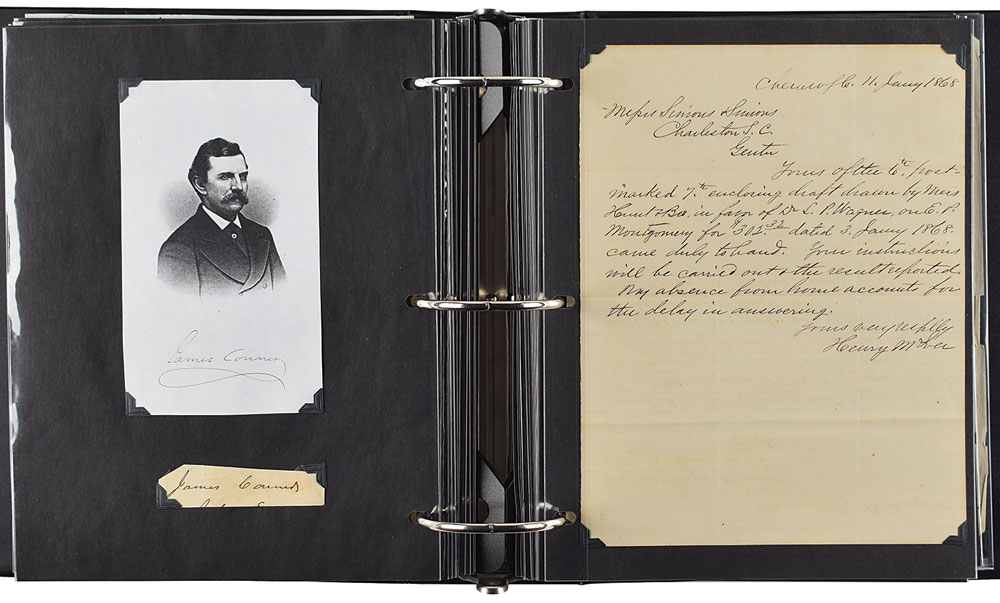 James Conner
James Conner
Cheraw S.C. 11. Jany 1868
Messrs Simons & Simons
Charleston S. C.
Gentn
Yours of the 6th, post-
marked 7th enclosing draft drawn by Mess
Hunt & Bro, in favor of Dr L. P. Wagner, on E. P.
Montgomery for $302.33 dated 3. Jany 1868.
came duly to hand. Your instructions
will be carried out & the result reported.
My absence from home accounts for
the delay in answering.
Yours very resptly
Henry McIver